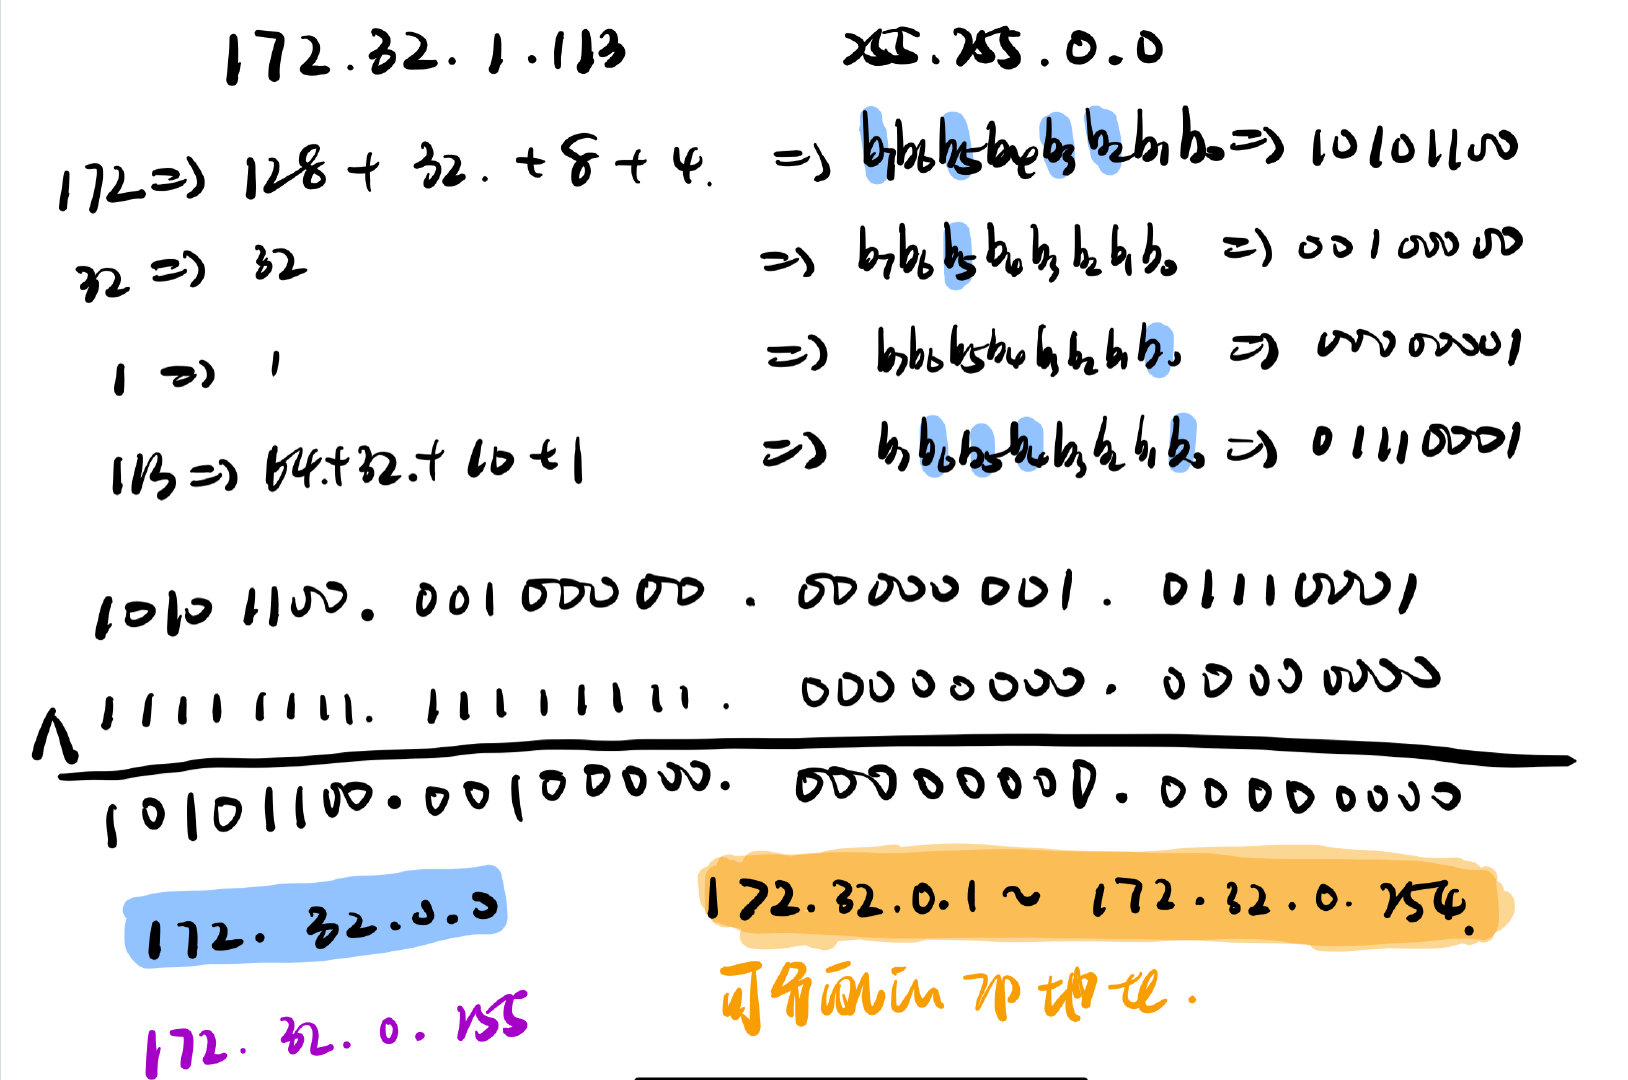 172.32.1.113 255.255.0.0
172=> 128 + 32. + 8 + 4. => b7b6b5b4b3b2b1b0 => 10101100
32 => 32 => b7b6b5b4b3b2b1b0 => 00100000
1 => 1 => b7b6b5b4b3b2b1b0 => 00000001
113 => 64.+32.+ 10 + 1 => b7b6b5b4b3b2b1b0 => 01110001
10101100.00100000.00000001.01110001
∧ 11111111.11111111.00000000.00000000
10101100.00100000.00000000.00000000
172.32.0.0 172.32.0.1 ~ 172.32.0.254.
可分配的 IP 地址.
172.32.0.255